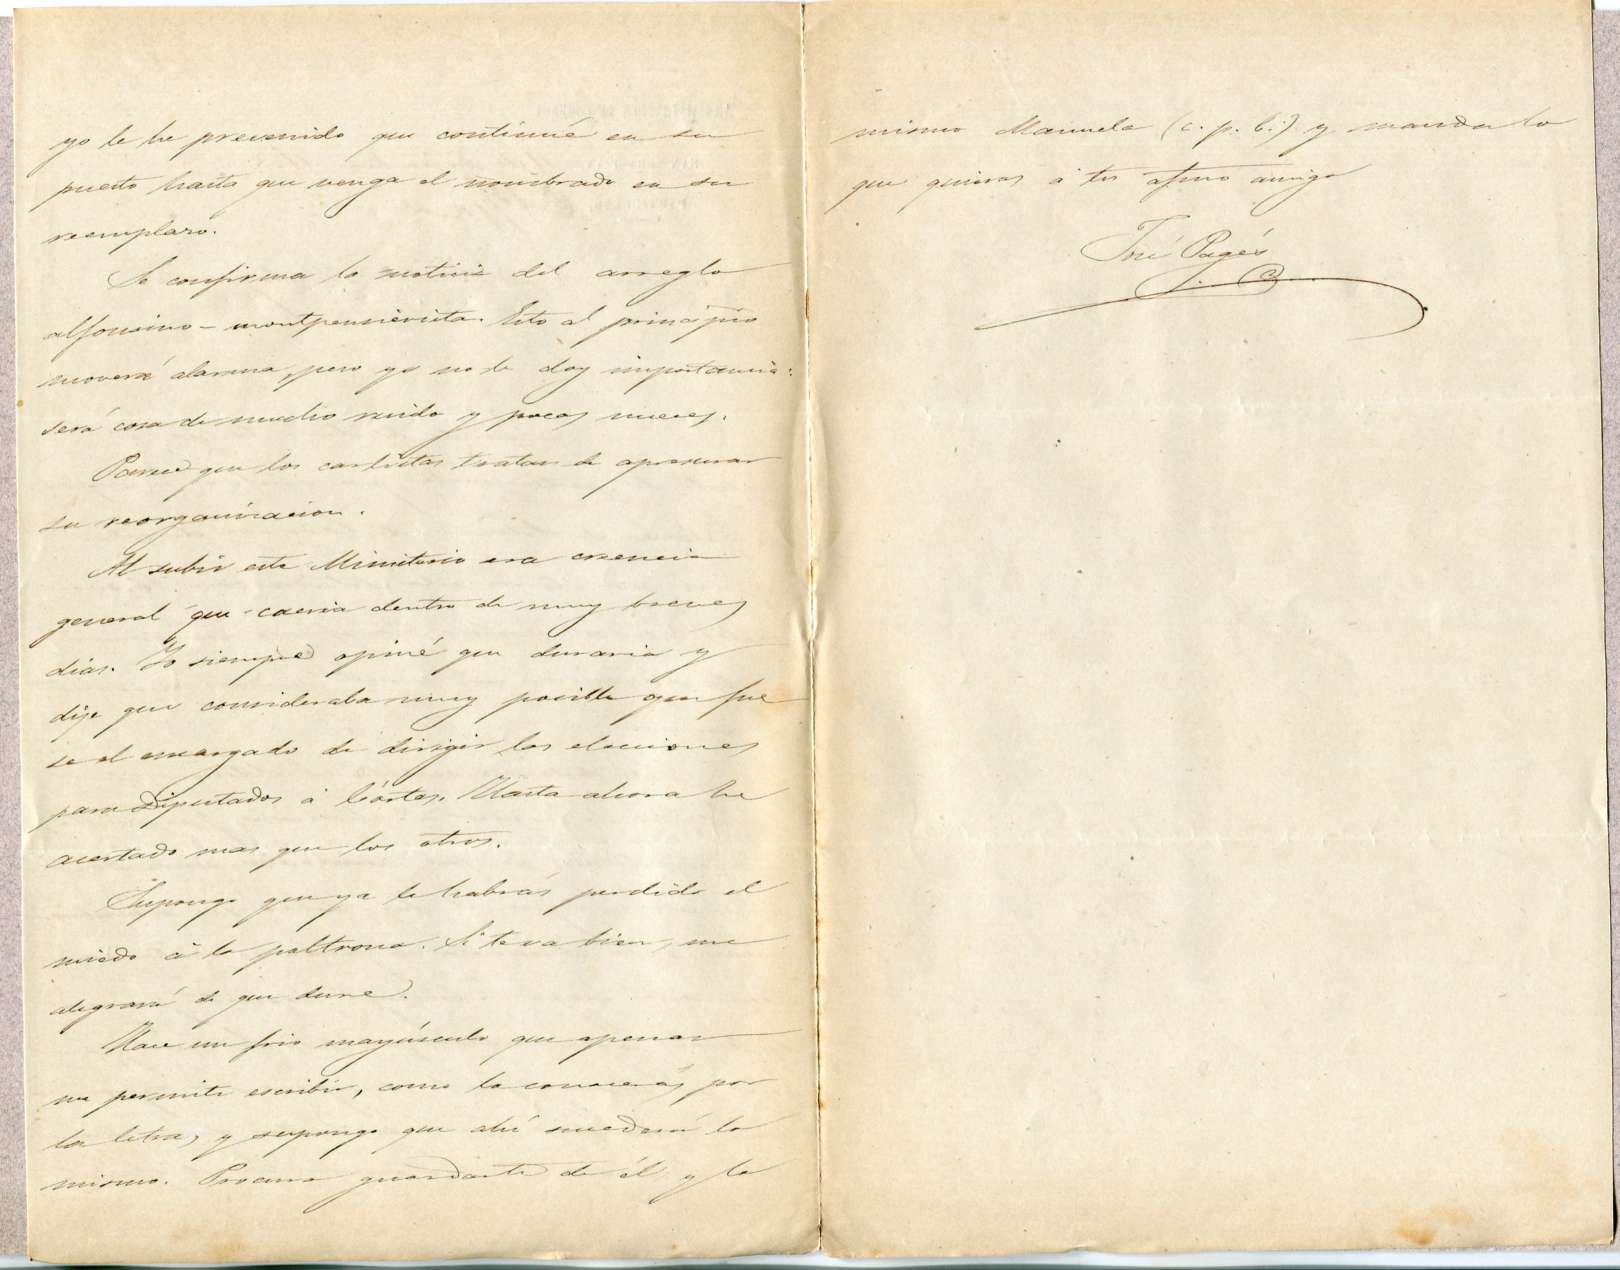 yo le he prevenido que continué en su
puesto hasta que venga el nombrado en su
reemplazo.
Se confirma la noticia del arreglo
alfonsino-montpensierista. Esto al principio
moverá alarma, pero yo no le doy importancia:
será cosa de mucho ruido y pocas nueces.
Parece que los carlistas tratan de apresurar
su reorganizacion.
Al subir este Ministerio era creencia
general que caeria dentro de muy breves
dias. Yo siempre opiné que duraria y
dije que consideraba muy posible que fue
se el encargado de dirigir las elecciones
para Diputados á Córtes. Hasta ahora he
acertado mas que los otros.
Supongo que ya le habrás perdido el
miedo á la poltrona. Si te va bien, me
alegraré de que dure.
Hace un frio mayúsculo que apenas
me permite escribir, como lo conocerás por
la letra, y supongo que ahí sucederá lo
mismo. Procura guardarte de él y lo
mismo Manuela (c. p. b.) y manda lo
que quieras á tu afmo amigo
José Pagés